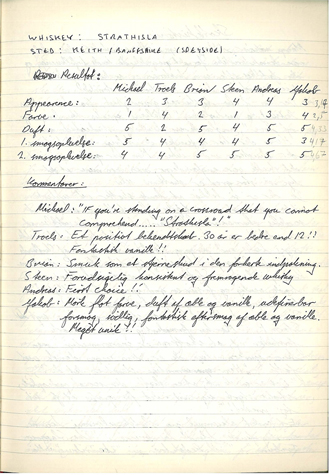 WHISKEY: STRATHISLA
STED: KEITH / BANFFSHIRE (SPEYSIDE)
Resultat:
Michael Troels Brian Steen Andreas Jakob
Appearence: 2 3 3 4 4 3
Farve: 1 4 2 1 3 4
Duft: 5 2 5 4 5 5
1. smagsoplevelse: 5 4 4 4 5 3
2. smagsoplevelse: 4 4 5 5 5 5
Kommentarer:
Michael: "IF you're standing on a crossroad that you cannot
comprehend..... "Strathisla"!
Troels: Et positivt bekendtskab. 30 år er bedre end 12!!
Fantastisk vanille!!
Brian: Smuk som et stjerneskud i den
Steen: Fornøjelig konsistent og fremragende whisky
Andreas: First choice!!
Jakob: Mørk flot farve, duft af æble og vanille, udefinerbar
forsmag, fantastisk eftersmag af æble og vanille.
Meget unik!!